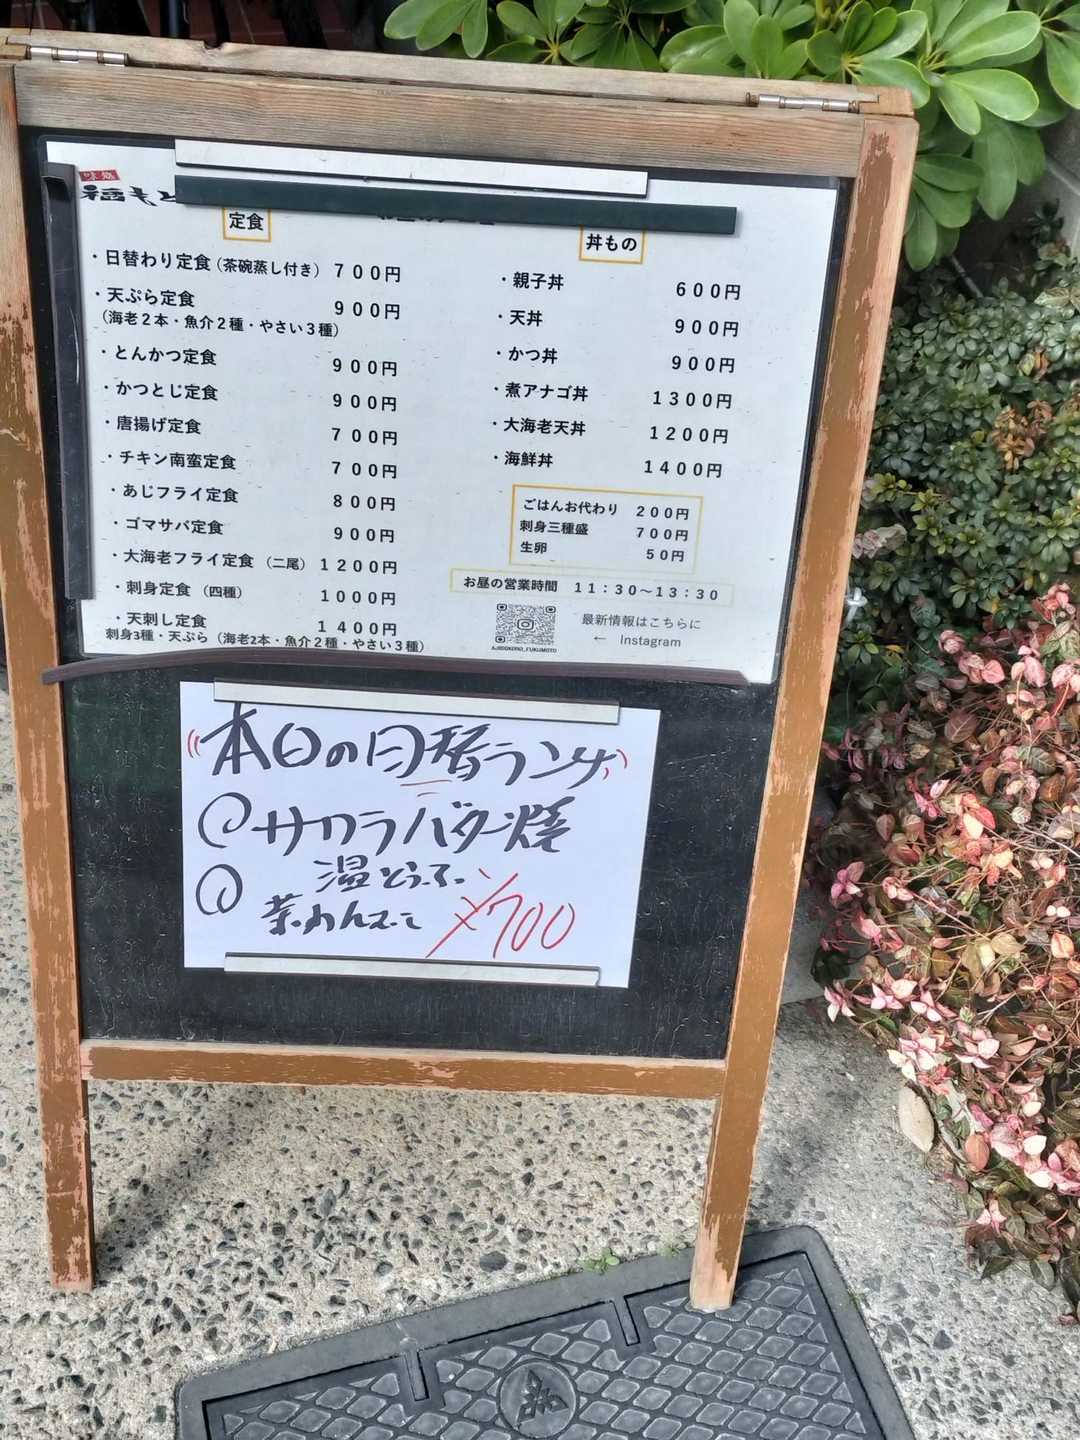 味処
福もと
定食
・日替わり定食(茶碗蒸し付き) 700円
・天ぷら定食 900円
(海老2本・魚介2種・やさい3種)
・とんかつ定食 900円
・かつとじ定食 900円
・唐揚げ定食 700円
・チキン南蛮定食 700円
・あじフライ定食 800円
・ゴマサバ定食 900円
・大海老フライ定食 (二尾) 1200円
・刺身定食 (四種) 1000円
・天刺し定食 1400円
刺身3種・天ぷら (海老2本・魚介2種・やさい3種)
丼もの
・親子丼 600円
・天丼 900円
・かつ丼 900円
・煮アナゴ丼 1300円
・大海老天丼 1200円
・海鮮丼 1400円
ごはんお代わり 200円
刺身三種盛 700円
生卵 50円
お昼の営業時間 11:30~13:30
最新情報はこちらに
← Instagram
AJIDOKORO_FUKUMOTO
本日の日替ランチ
サワラバター焼
温とうふ
茶わんむし
¥700